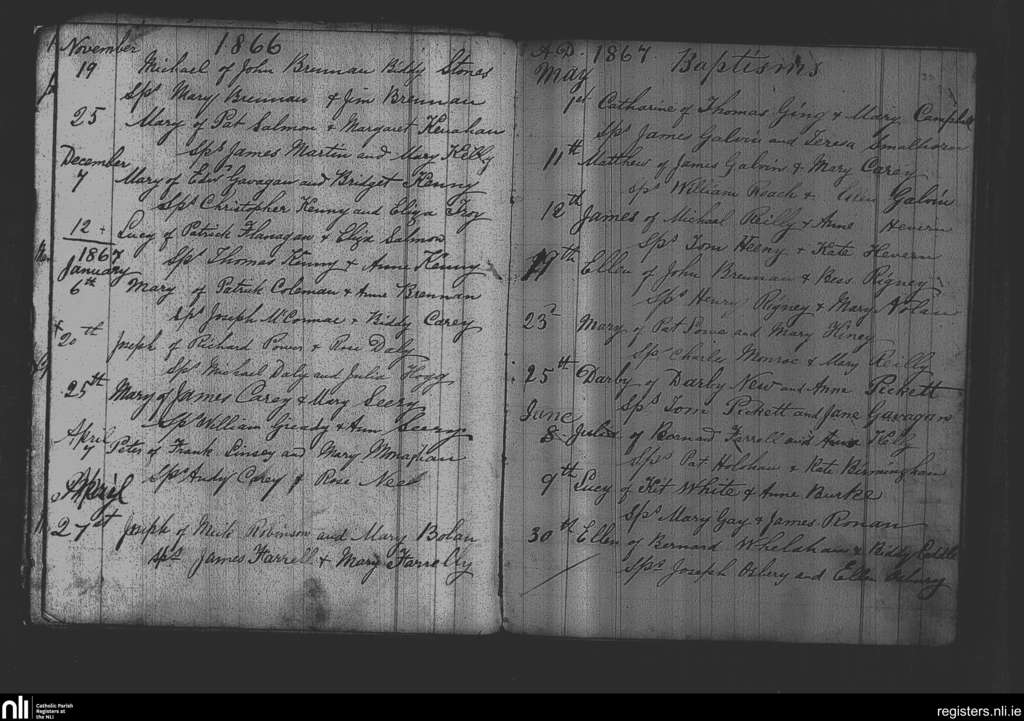 November 1866
19 Michael of John Brennan Biddy Stones
Sps Mary Brennan & Jim Brennan
25 Mary of Pat Salmon & Margaret Kenahan
Sps James Martin and Mary Kelly
December
7 Mary of Edw Gavagan and Bridget Kenny
Sps Christopher Kenny and Eliza Troy
12 + Lucy of Patrick Flanagan & Eliza Salmon
1867 Sps Thomas Kinny & Anne Kenny
January
6th Mary of Patrick Coleman & Anne Brennan
Sps Joseph McCormac & Biddy Carey
20th Joseph of Richard Power & Rose Daly
Sps Michael Daly and Julia Hogg
25th Mary of James Carey & Mary Seery
Sps William Gready & Ann Seery
April
7 Peter of Frank Linsey and Mary Monaghan
Sps Andy Carey & Rose Nee
April
27st Joseph of Mick Robinson and Mary Bolan
Sps James Farrell & Mary Farrelly
A.D. 1867 Baptisms
May
1st Catharine of Thomas Ging & Mary Campbell
Sps James Galvin and Teresa Smallhorn
11th Matthew of James Galvin & Mary Carey
Sps William Roach & Galvin
12th James of Michael Reilly & Anne Hevern
Sps Tom Heeny & Kate Hevern
19th Ellen of John Brennan & Bess Rigney
Sps Henry Rigney & Mary Nolan
23d Mary of Pat and Mary Hiney
Sps Charles Monroe & Mary Reilly
25th Darby of Darby New and Anne Pickett
Sps Tom Pickett and Jane Gavagan
June
8 Julia of Bernard Farrell and Anne Kelly
Sps Pat Holohan & Kate Birmingham
9th Lucy of Kit White & Anne Burke
Sps Mary Gay & James Ronan
30th Ellen of Bernard Whelahan & Biddy
Sps Joseph Osbery and Ellen Osbery
nli Catholic Parish
Registers at
the NLI
registers.nli.ie